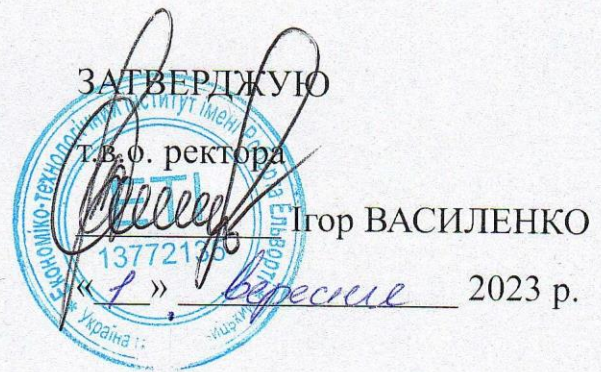 ЗАТВЕРДЖУЮ
т.в.о. ректора
Ігор ВАСИЛЕНКО
« 1 » вересня 2023 р.
Економіко-технологічний інститут імені Роберта Ельворті
ЕТІ
Україна